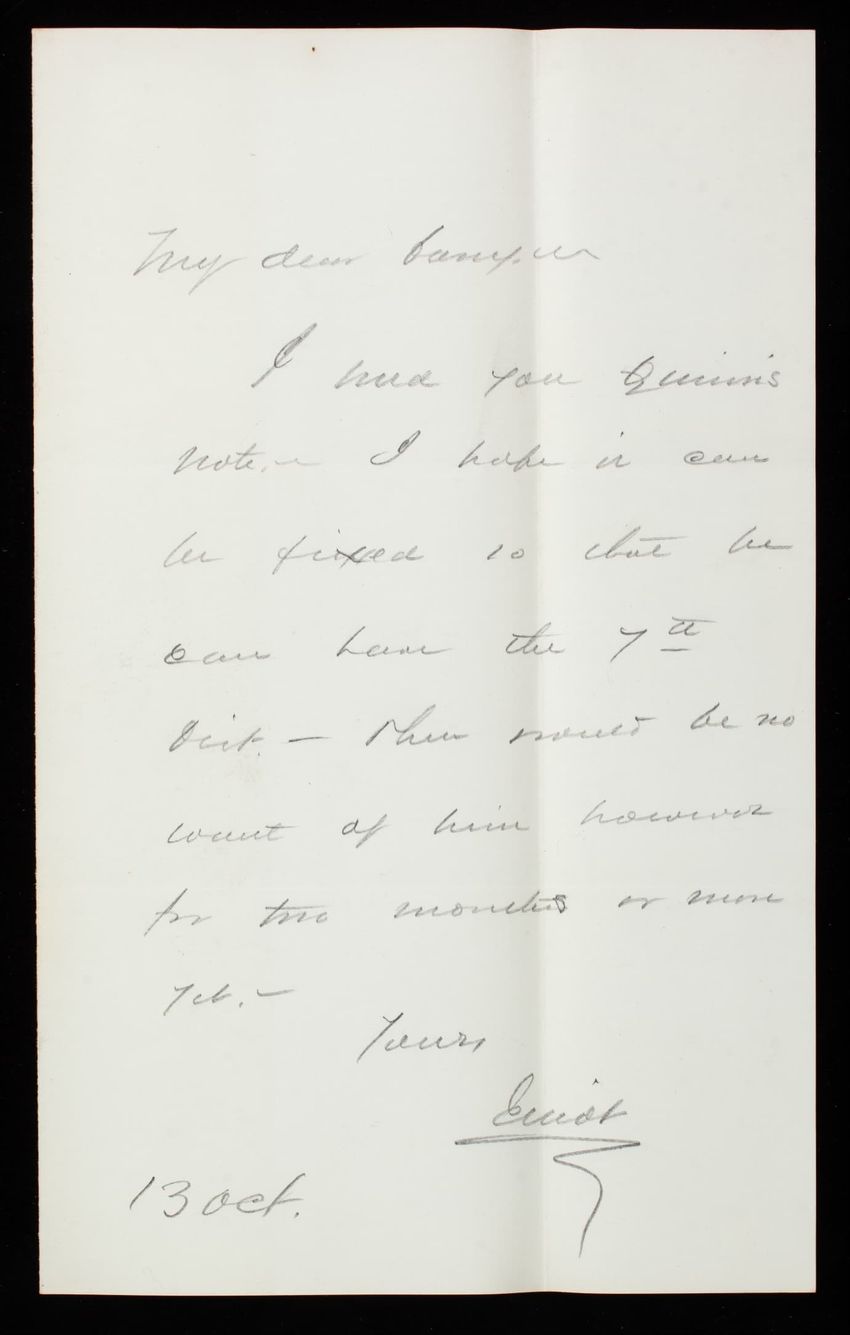 My dear
I send you Quinn's
note. — I hope it can
be fixed so that he
can have the 7th
Dist. — There would be no
want of him however
for two months or more
yet. —
Yours
Eliot
13 Oct.